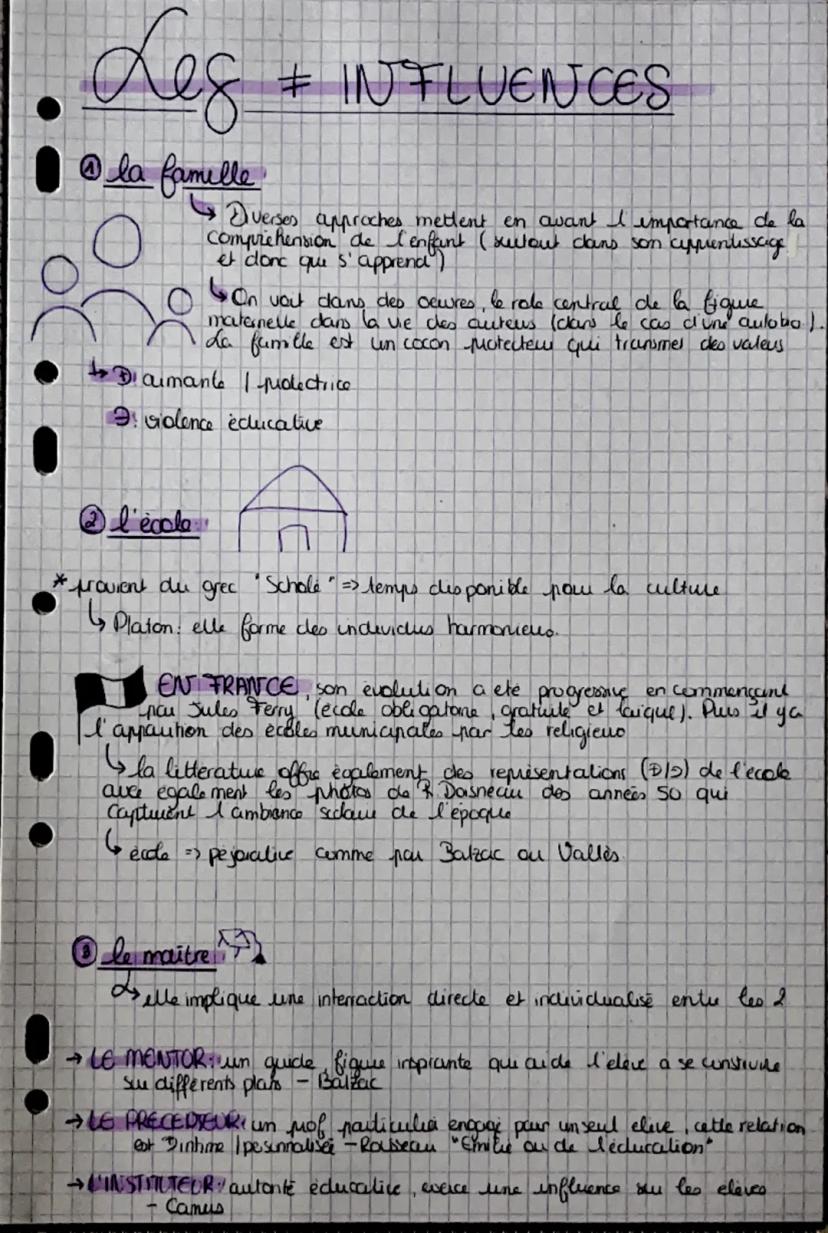 Les ≠ INFLUENCES
① la famille
↳ Diverses approches mettent en avant l'importance de la
compréhension de l'enfant (surtout dans son apprentissage
et donc qui s'apprend)
↳ On voit dans des oeuvres, le role central de la figure
maternelle dans la vie des auteurs (dans le cas d'une autobio).
La famille est un cocon protecteur qui transmet des valeurs
↳ ⊕: aimante / protectrice
⊖: violence éducative
② l'école:
* provient du grec "Scholé" => temps disponible pour la culture
↳ Platon: elle forme des individus harmonieux.
EN FRANCE, son évolution a été progressive en commençant
par Jules Ferry (école obligatoire, gratuite et laïque). Puis il y a
l'apparition des écoles municipales par les religieux
↳ la littérature offre également des représentations (⊕/⊖) de l'école
avec également les photos de R Doisneau des années 50 qui
capturent l'ambiance scolaire de l'époque
↳ école => péjorative comme par Balzac ou Vallès
③ le maître:
↳ elle implique une interraction directe et individualisé entre les 2
→ LE MENTOR: un guide, figure inspirante qui aide l'élève a se construire
sur différents plans - Balzac
→ LE PRECEPTEUR: un prof particulier engagé pour un seul élève, cette relation
est intime / personnalisée - Rousseau "Emile ou de l'éducation"
→ L'INSTITUTEUR: autorité éducative, exerce une influence sur les élèves
- Camus